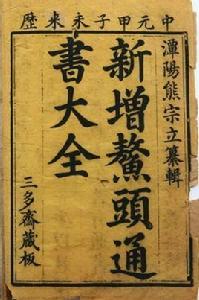 中元甲子未來歴
潭陽熊宗立纂輯
新增鰲頭通
書大全
三多齋藏板